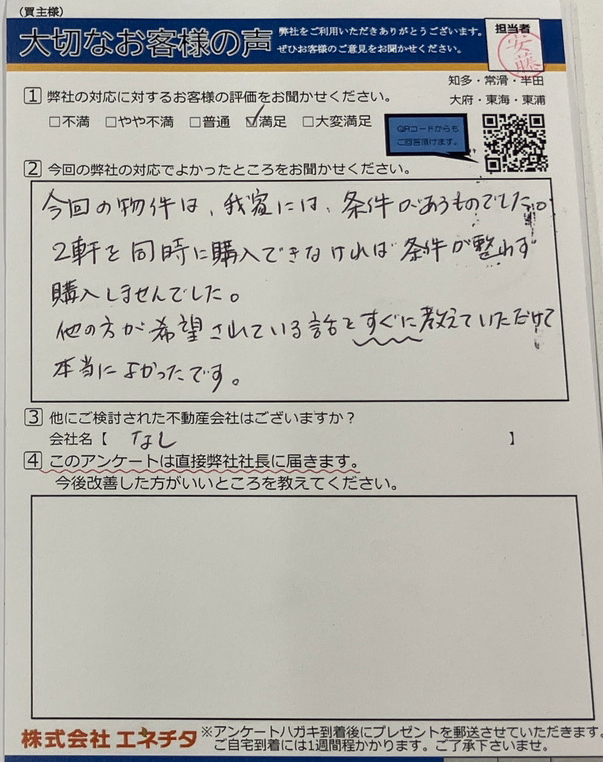 (買主様)
大切なお客様の声
弊社をご利用いただきありがとうございます。
ぜひお客様のご意見をお聞かせください。
担当者
安藤
知多・常滑・半田
大府・東海・東浦
1 弊社の対応に対するお客様の評価をお聞かせください。
□不満 □やや不満 □普通 ☑満足 □大変満足
QRコードからも
ご回答頂けます。
2 今回の弊社の対応でよかったところをお聞かせください。
今回の物件は、我家には、条件があうものでした。
2軒を同時に購入できなければ条件が整わず
購入しませんでした。
他の方が希望されている話とすぐに教えていただけて
本当によかったです。
3 他にご検討された不動産会社はございますか？
会社名【 なし 】
4 このアンケートは直接弊社社長に届きます。
今後改善した方がいいところを教えてください。
株式会社 エネチタ
※アンケートハガキ到着後にプレゼントを郵送させていただきます。
ご自宅到着には1週間程かかります。ご了承下さいませ。